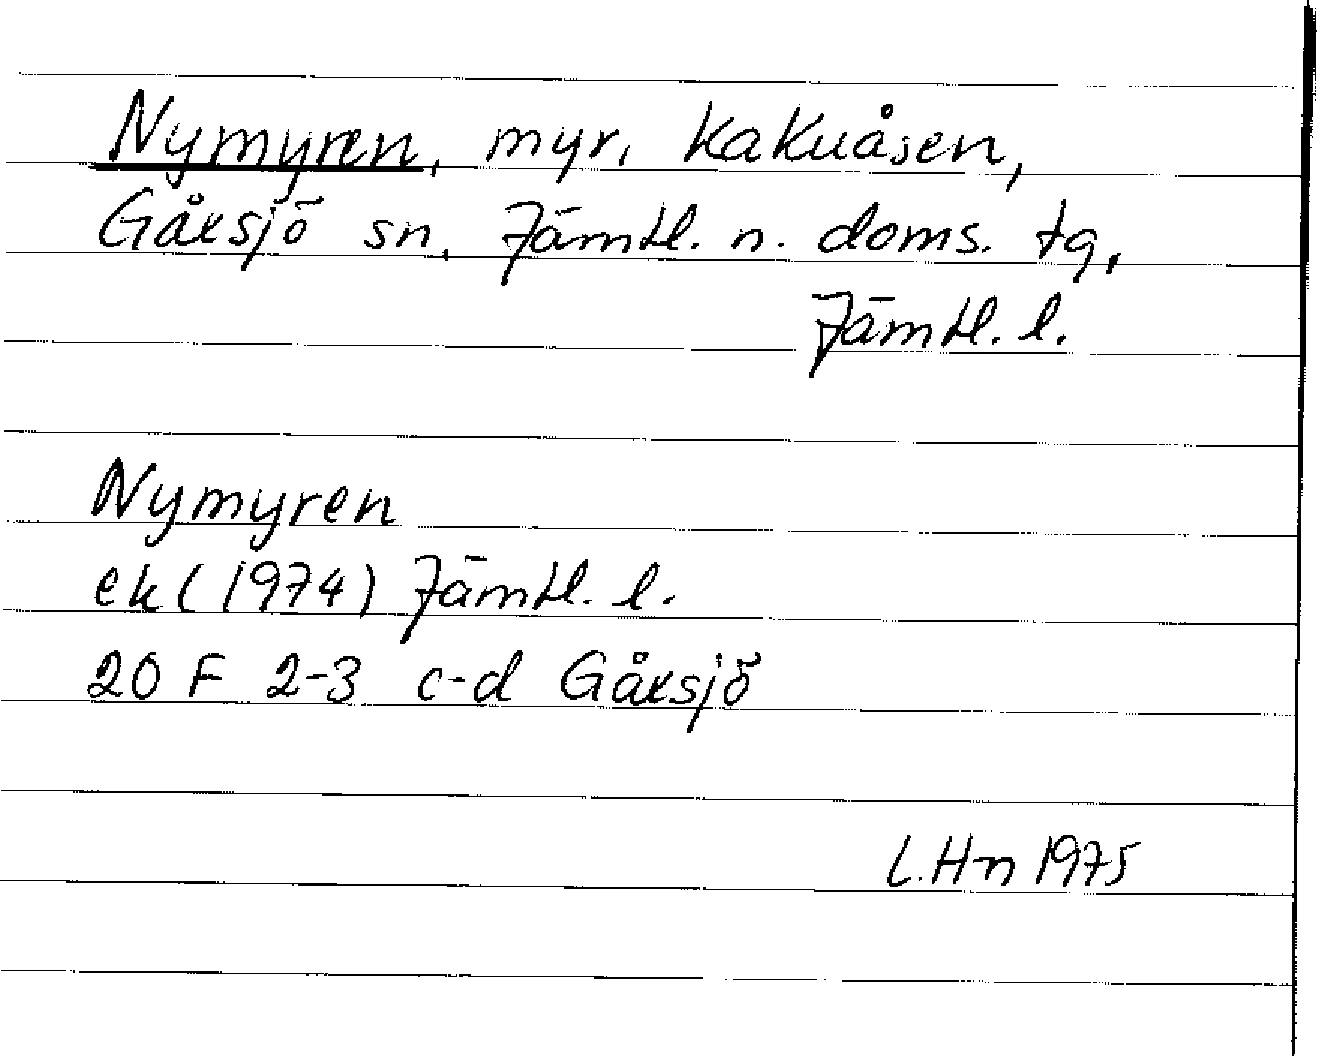 Nymyren, myr, Kakuåsen,
Gåxsjö sn, Jämtl. n. doms. tg,
Jämtl. l.
Nymyren
ek (1974) Jämtl. l.
20 F 2-3 c-d Gåxsjö
L.Hn 1975